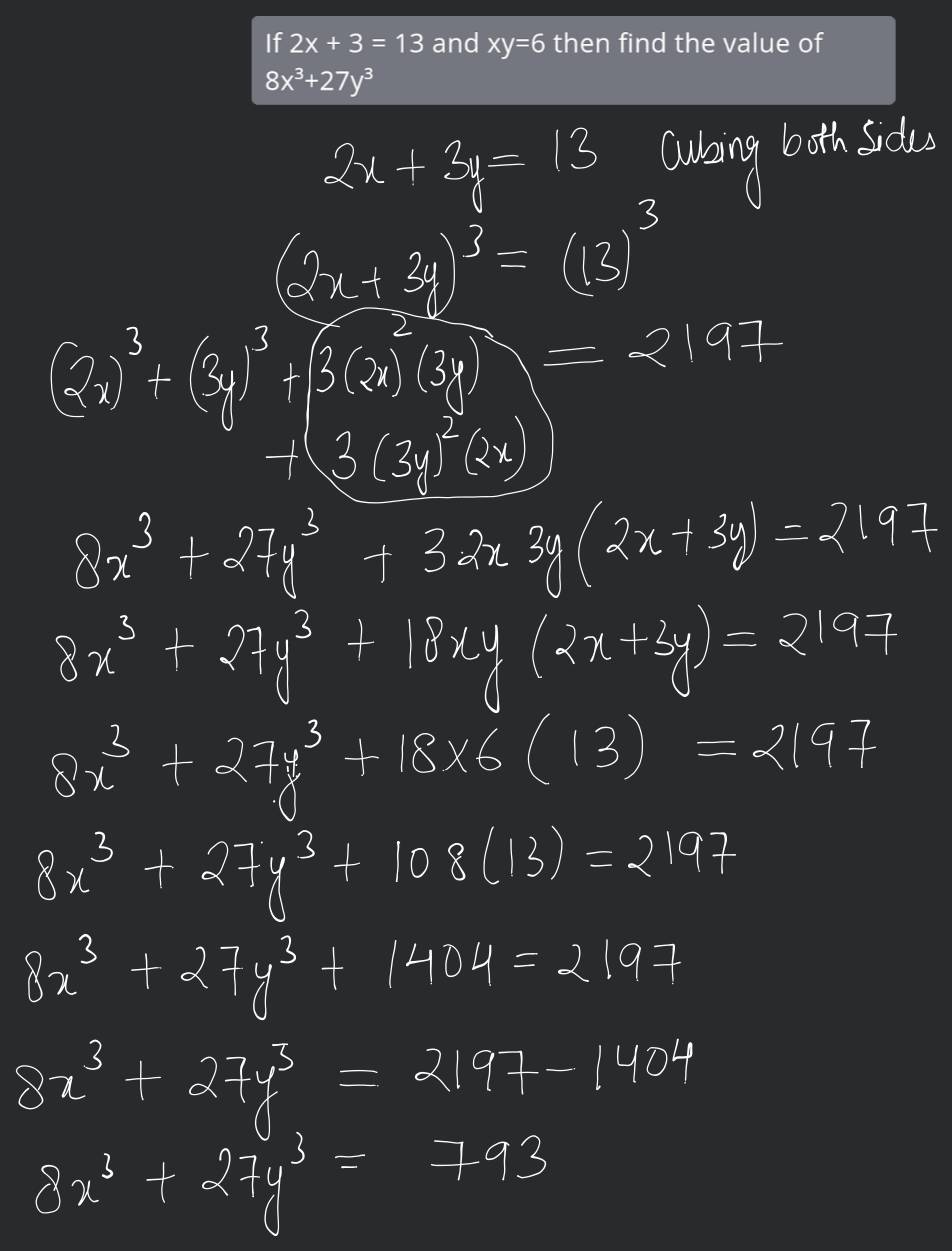 If 2x + 3 = 13 and xy=6 then find the value of
8x³+27y³
2x + 3y = 13 Cubing both Sides
(2x + 3y)³ = (13)³
(2x)³ + (3y)³ + 3(2x)²(3y) = 2197
+ 3(3y)²(2x)
8x³ + 27y³ + 3 2x 3y (2x + 3y) = 2197
8x³ + 27y³ + 18xy (2x+3y) = 2197
8x³ + 27y³ + 18x6 (13) = 2197
8x³ + 27y³ + 108(13) = 2197
8x³ + 27y³ + 1404 = 2197
8x³ + 27y³ = 2197 - 1404
8x³ + 27y³ = 793